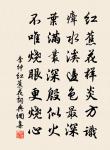 紅蕉花樣炎方識
瘴水溪邊色最深
葉滿叢深殷似火
不唯燒眼更燒心
李紳紅蕉花詞典網集